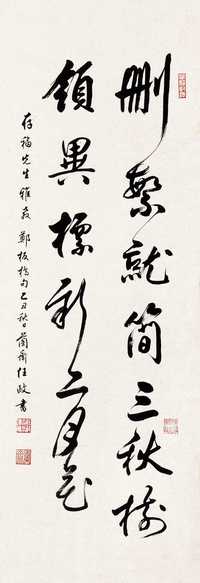 刪繁就簡三秋樹
領異標新二月花
存福先生雅教 鄭板橋句 乙丑秋日蘭齋任政書